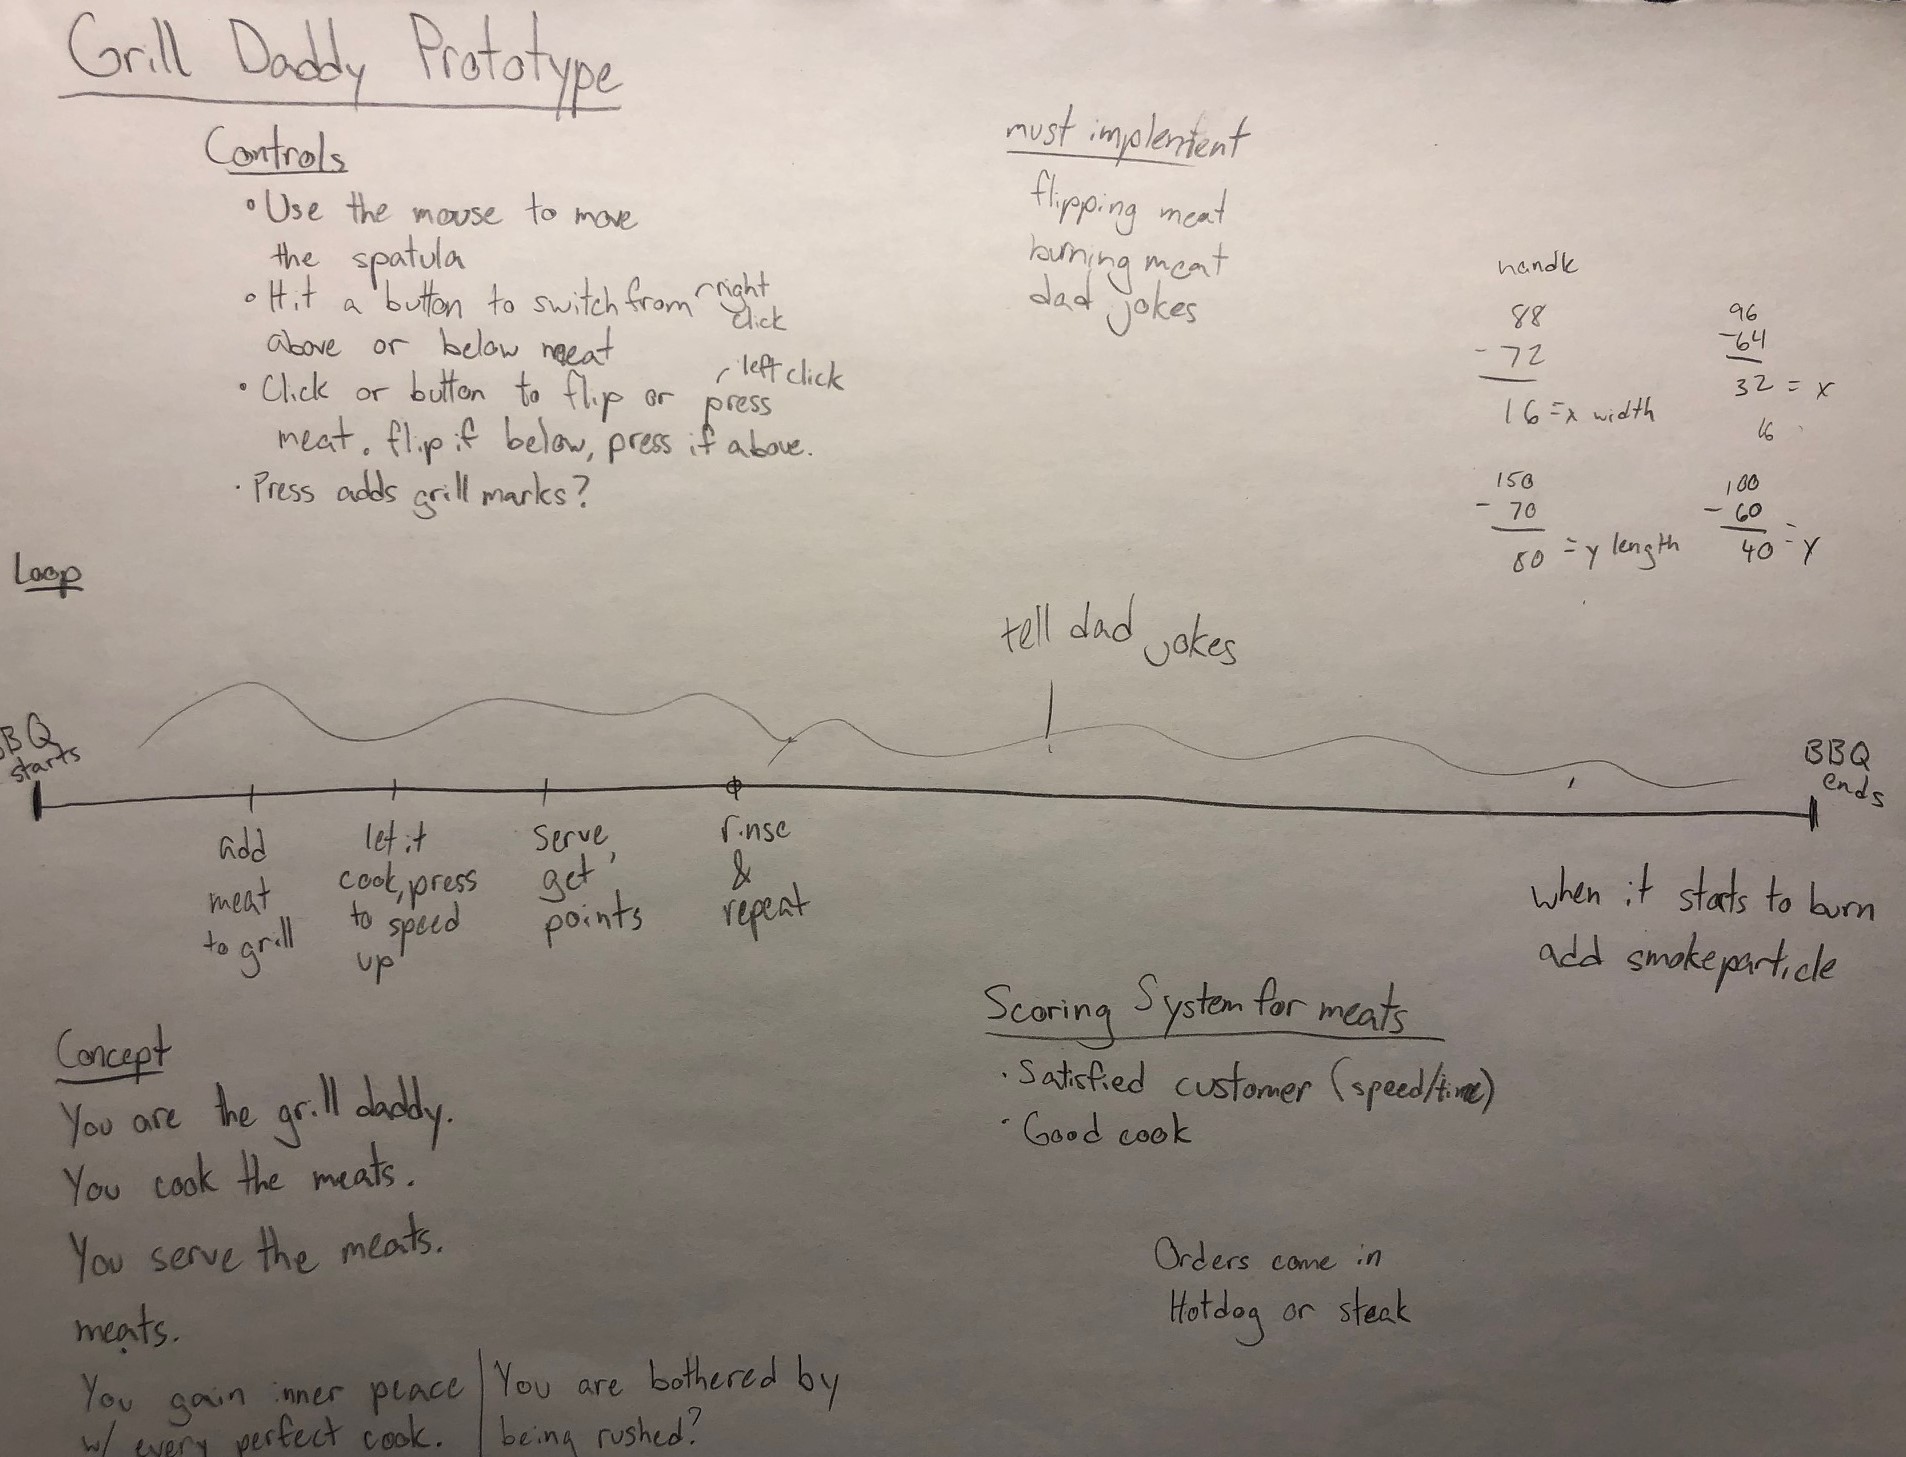 Grill Daddy Prototype
Controls
• Use the mouse to move
the spatula
• Hit a button to switch from right
click
above or below meat
• Click or button to flip or press
left click
meat. flip if below, press if above.
• Press adds grill marks?
must implement
flipping meat
burning meat
dad jokes
handle
88
- 72
16 = x width
150
- 70
80 = y length
96
- 64
32 = x
16
100
- 60
40 = y
Loop
tell dad jokes
BBQ
starts
add
meat
to grill
let it
cook, press
to speed
up
serve,
get
points
rinse
&
repeat
BBQ
ends
when it starts to burn
add smoke particle
Concept
You are the grill daddy.
You cook the meats.
You serve the meats.
meats.
You gain inner peace
w/ every perfect cook.
You are bothered by
being rushed?
Scoring System for meats
• Satisfied customer (speed/time)
• Good cook
Orders come in
Hotdog or steak